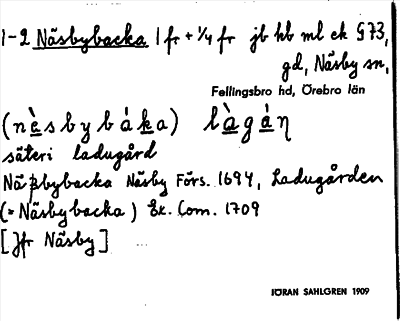 1-2 Näsbybacka 1 fr + 1/4 fr jb hb ml ek § 73,
gd, Näsby sn,
Fellingsbro hd, Örebro län
(nèsbybáka) làgáṇ
säteri ladugård
Näßbybacka Näsby Förs. 1694, Ladugården
(= Näsbybacka) Ex. Com. 1709
[Jfr Näsby]
JÖRAN SAHLGREN 1909